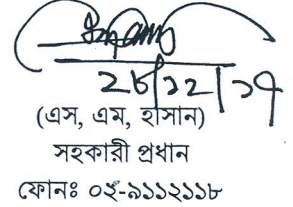 ২৮/১২/১৭
(এস, এম, হাসান)
সহকারী প্রধান
ফোনঃ ০২-৯১১২১১৮